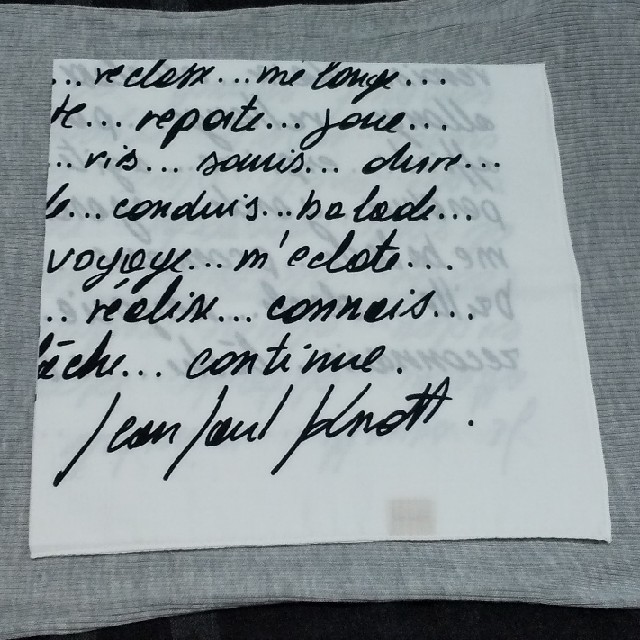 ... me longe...
te... reporte... joue...
... ris... souris... dure...
... conduis... balade...
voyage... m'eclate...
... réalise... connais...
... continue.
Jean Paul Knott.